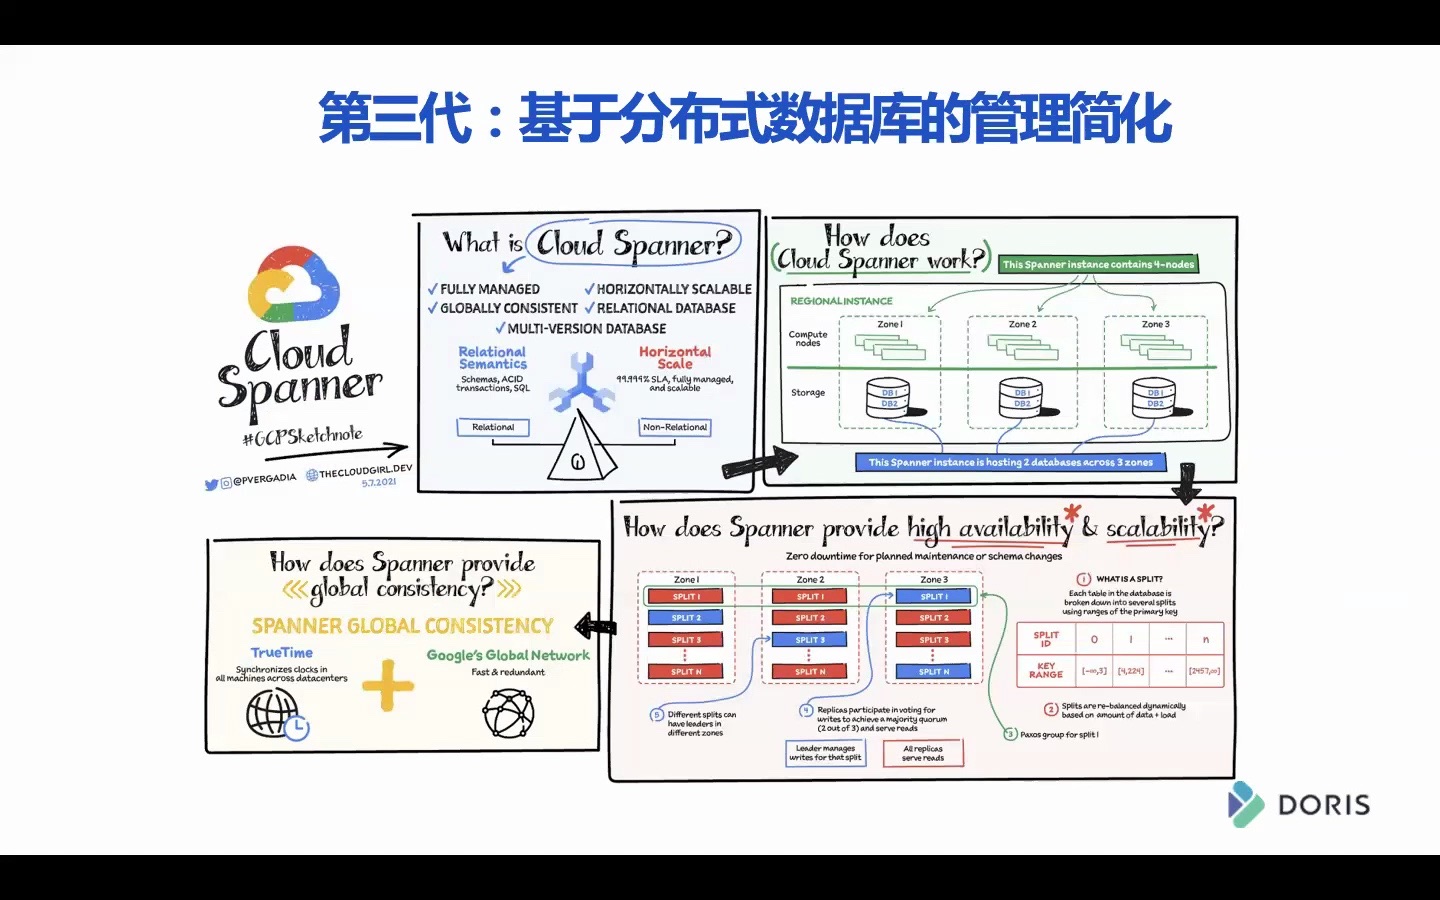 第三代：基于分布式数据库的管理简化
Cloud
Spanner
#GCPSketchnote
@PVERGADIA
THECLOUDGIRL.DEV
5.7.2021
What is Cloud Spanner?
✓ FULLY MANAGED
✓ HORIZONTALLY SCALABLE
✓ GLOBALLY CONSISTENT
✓ RELATIONAL DATABASE
✓ MULTI-VERSION DATABASE
Relational
Semantics
Schemas, ACID
transactions, SQL
Horizontal
Scale
99.999% SLA, fully managed,
and scalable
Relational
Non-Relational
How does
(Cloud Spanner work?)
This Spanner instance contains 4-nodes
REGIONAL INSTANCE
Zone 1
Zone 2
Zone 3
Compute
nodes
Storage
DB1
DB2
DB1
DB2
DB1
DB2
This Spanner instance is hosting 2 databases across 3 zones
How does Spanner provide high availability* & scalability*?
Zero downtime for planned maintenance or schema changes
Zone 1
SPLIT 1
SPLIT 2
SPLIT 3
SPLIT N
Zone 2
SPLIT 1
SPLIT 2
SPLIT 3
SPLIT N
Zone 3
SPLIT 1
SPLIT 2
SPLIT 3
SPLIT N
1 WHAT IS A SPLIT?
Each table in the database is
broken down into several splits
using ranges of the primary key
SPLIT ID 0 1 ... n
KEY RANGE [-∞,3] [4,224] ... [2457,∞]
2 Splits are re-balanced dynamically
based on amount of data + load
3 Paxos group for split 1
4 Replicas participate in voting for
writes to achieve a majority quorum
(2 out of 3) and serve reads
5 Different splits can
have leaders in
different zones
Leader manages
writes for that split
All replicas
serve reads
How does Spanner provide
global consistency?
SPANNER GLOBAL CONSISTENCY
TrueTime
Synchronizes clocks in
all machines across datacenters
+
Google's Global Network
Fast & redundant
DORIS